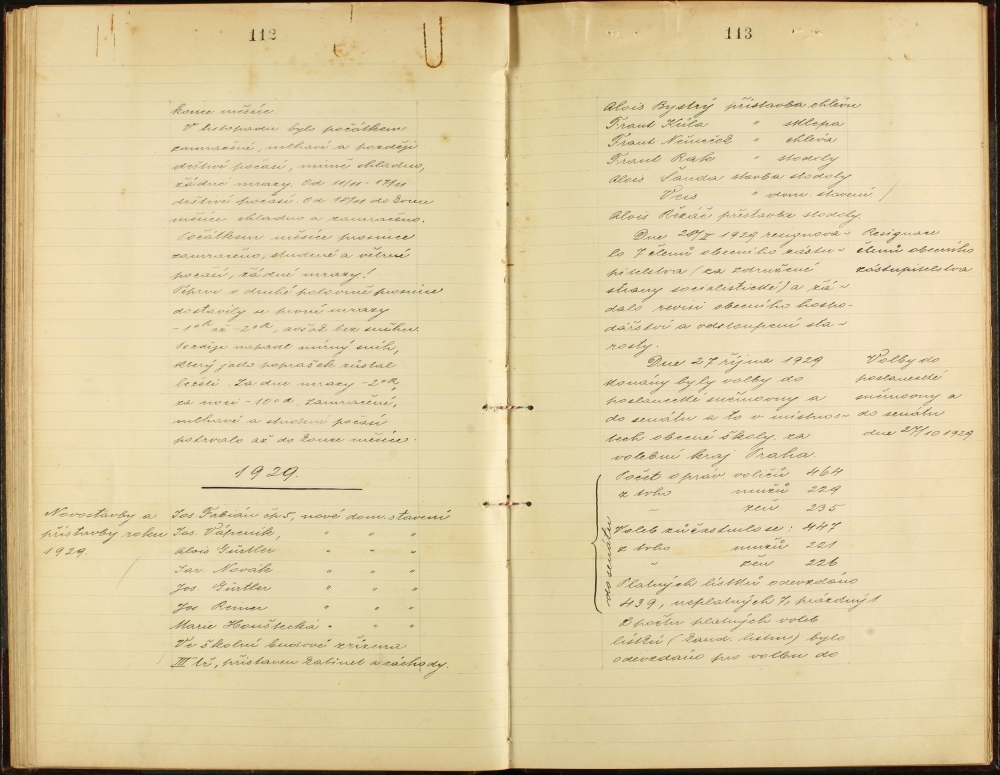 112
konce měsíce
V listopadu bylo počátkem
zamračené, mlhavé a později
deštivé počasí, mírně chladno,
žádné mrazy. Od 11/11 - 17/11
deštivé počasí. Od 18/11 do konce
měsíce chladno a zamračeno.
Počátkem měsíce prosince
zamračeno, studené a větrné
počasí, žádné mrazy!
Teprve v druhé polovině prosince
dostavily se první mrazy
-1°R až -2°R, avšak bez sněhu.
Později napadl mírný sníh,
který jako poprašek zůstal
ležeti. Za dne mrazy -2°R,
za noci -10°R. Zamračené,
mlhavé a studené počasí
potrvalo až do konce měsíce.
1929.
Novostavby a
přístavby roku
1929.
Jos Fabián čp 5, nové dom. stavení
Jos. Vápeník, " " "
Alois Gürtler " " "
Jar. Novák " " "
Jos. Gürtler " " "
Jos Reiner " " "
Marie Houštecká " " "
Ve školní budově zřízena
III tř, přístaven kabinet a záchody.
113
Alois Bystrý přístavba chléva
Frant Kůla " sklepa
Frant Němeček " chléva
Frant Rak " stodoly
Alois Sanda stavba stodoly
Vcis " dom. stavení
Alois Řezáč přístavba stodoly.
Dne 28/X 1929 resignova-
lo 7 členů obecního zastu-
pitelstva (za sdružené
strany socialistické) a žá-
dalo revisi obecního hospo-
dářství a odstoupení sta-
rosty.
Resignace
členů obecního
zastupitelstva
Dne 27 října 1929
konány byly volby do
poslanecké sněmovny a
do senátu a to v místnos-
tech obecné školy za
volební kraj Praha.
Volby do
poslanecké
sněmovny a
do senátu
dne 27/10 1929
do senátu
Počet opráv voličů 464
z toho mužů 229
" žen 235
Voleb zúčastnilo se: 447
z toho mužů 221
" žen 226
Platných lístků odevzdáno
439, neplatných 7, prázdný 1
Z počtu platných voleb
lístků (kand. listin) bylo
odevzdáno pro volbu do